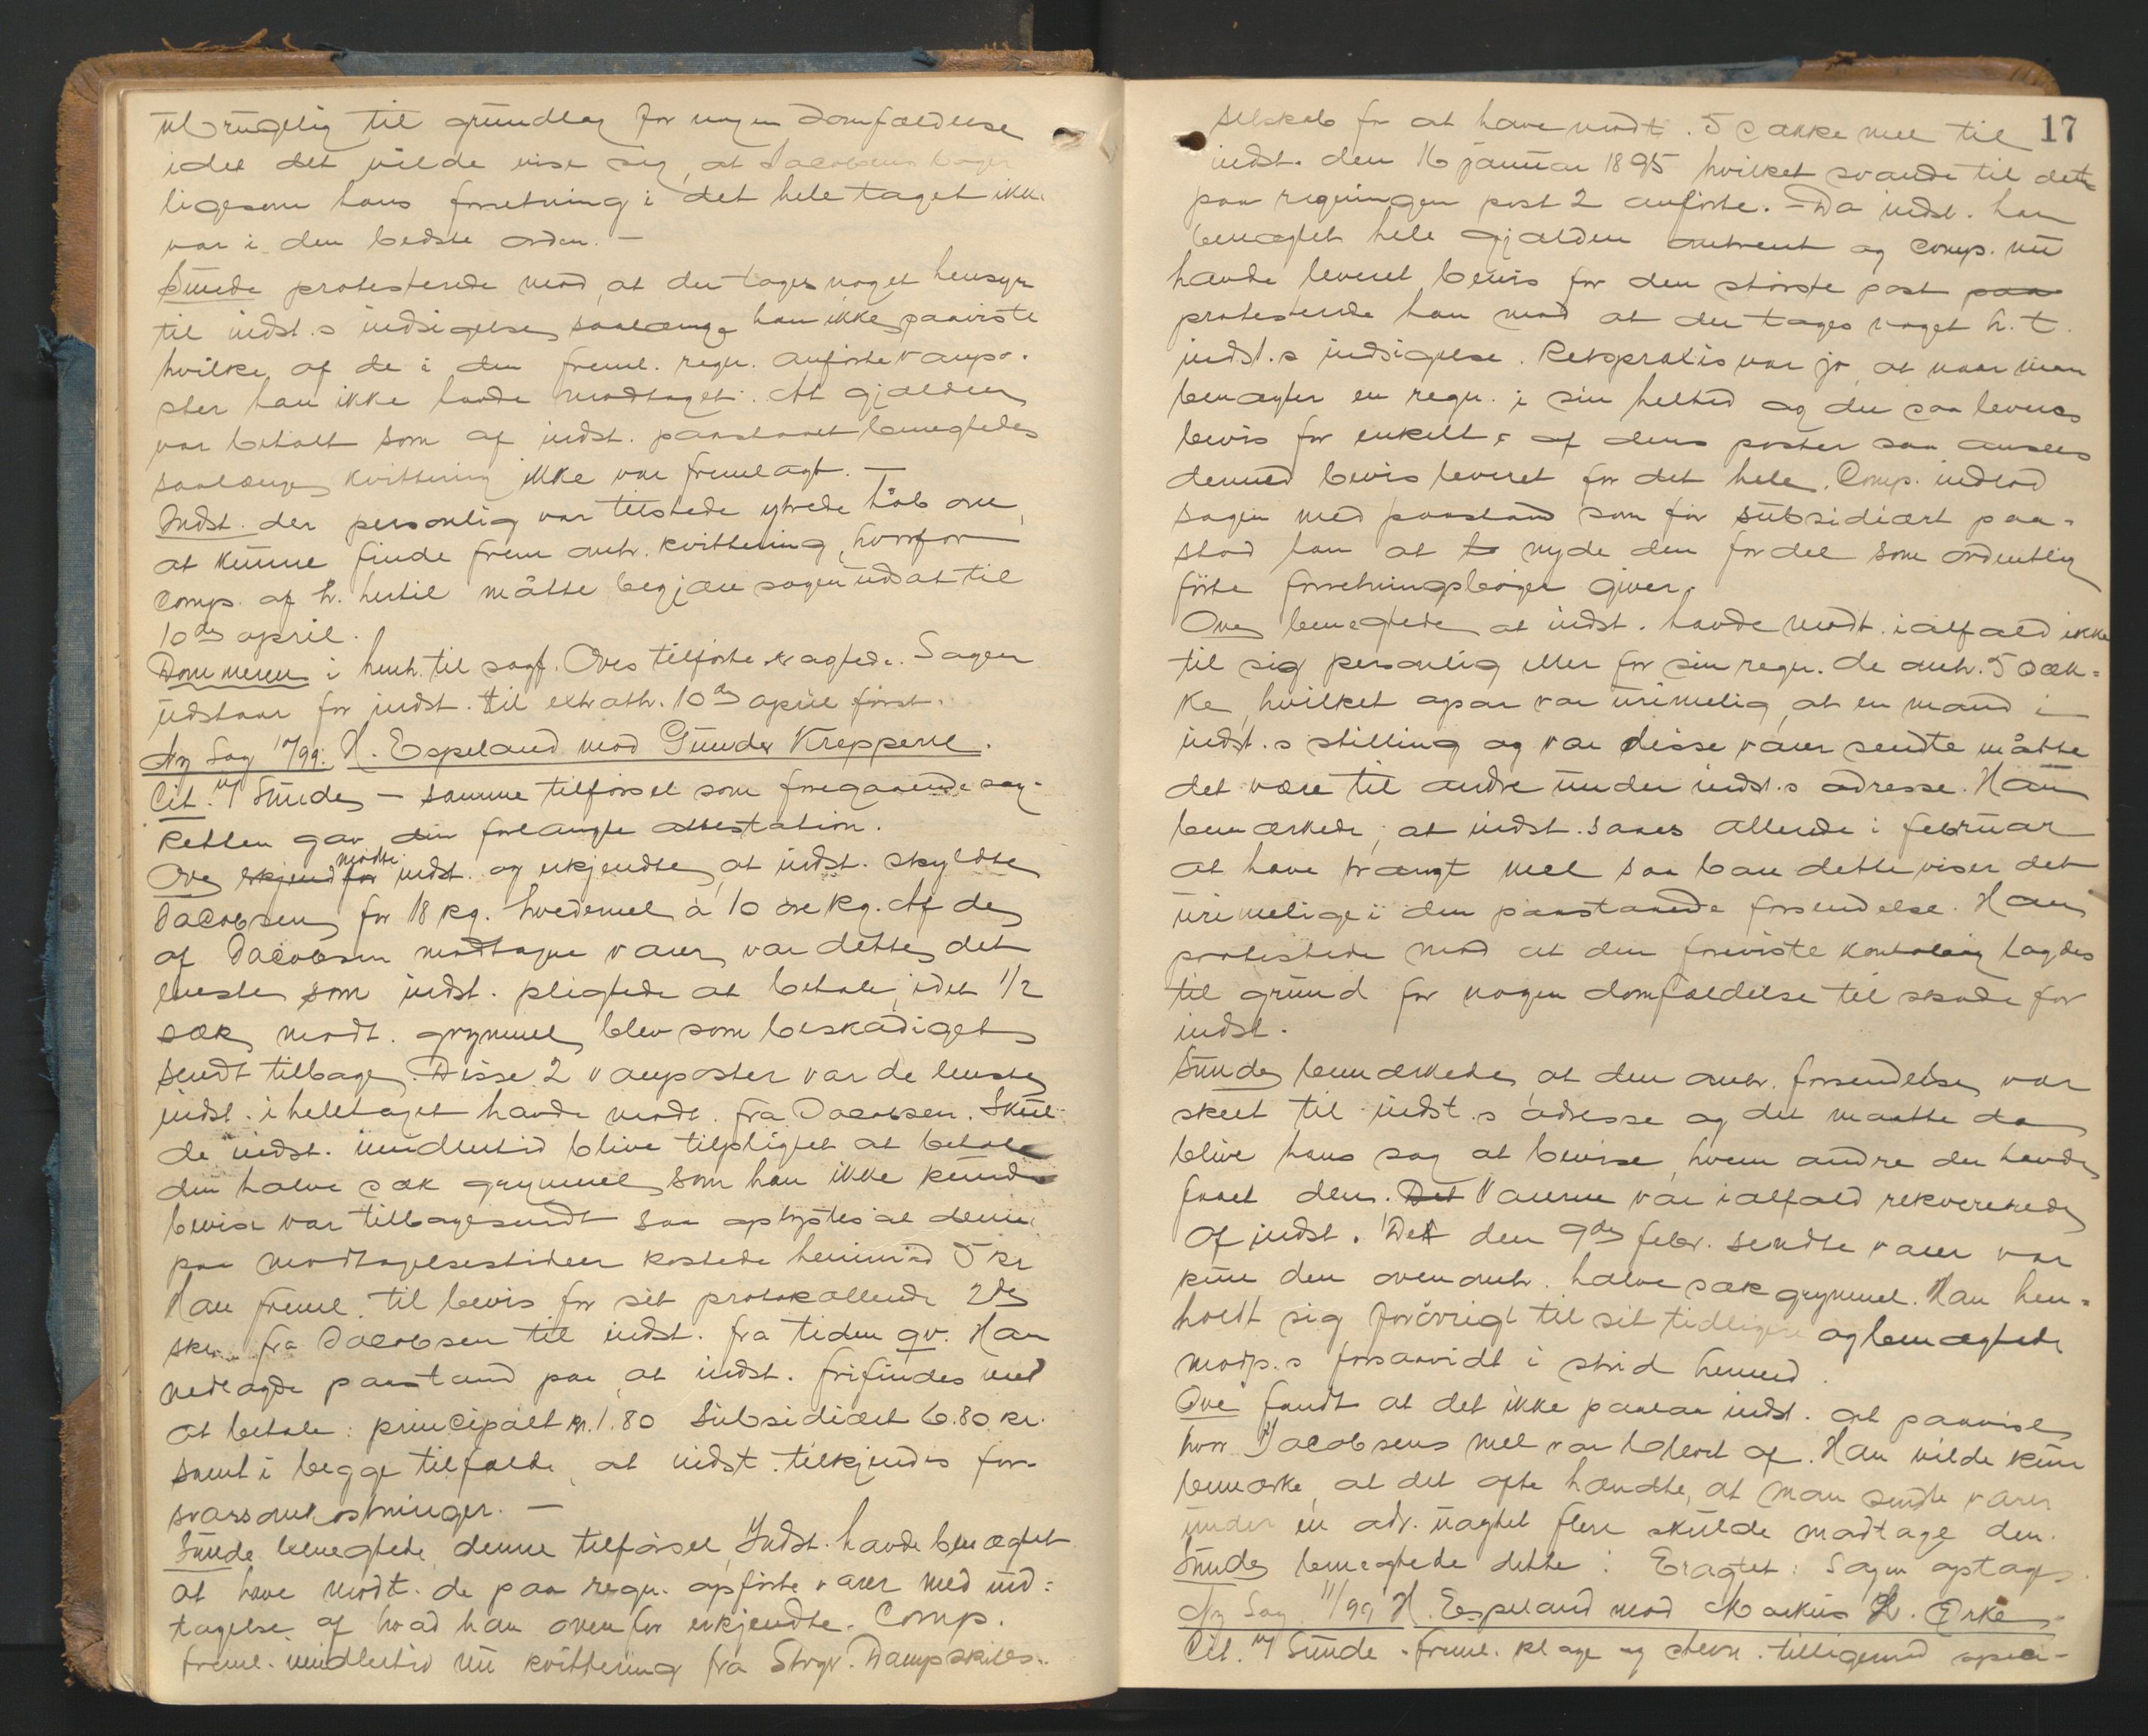 ubrugelig til grundlag for nogen domfældelse
idet det vilde vise sig, at Jacobsens bøger
ligesom hans forretning i det hele taget ikke
var i den bedste orden. —
Sunde protesterede mod, at der tages noget hensyn
til indst.s indsigelse saalænge han ikke paaviste
hvilke af de i den freml. regn. anførte varepo-
ster han ikke havde modtaget. At gjælden
var betalt som af indst. paastaaet benegtedes
saalænge kvittering ikke var fremlagt. —
Indst. der personlig var tilstede ytrede håb om,
at kunne finde frem anh. kvittering, hvorfor
Comp. af h. hertil måtte begjære sagen udsat til
10de april.
Dommeren i henh. til sagf. Oves tilførte eragtede. Sagen
udstaar for indst. til extrath. 10de april først.
Ny Sag 10/99: H. Espeland mod Gunder Kreppene.
Cit. v/ Sunde — samme tilførsel som foregaaende sag.
Retten gav din forlangte attestation.
Ove erkjend for mødte indst. og erkjendte, at indst. skyldte
Jacobsen for 18 kg. hvedemel à 10 øre kg. Af de
af Jacobsen modtagne varer var dette det
eneste som indst. pligtede at betale, idet 1/2
sæk modt. grynmel blev som beskadiget
sendt tilbage. Disse 2 vareposter var de eneste
indst. i heletaget havde modt. fra Jacobsen. Skul-
de indst. imidlertid blive tilpligtet at betale
den halve sæk grynmel som han ikke kunde
bevise var tilbagesendt saa oplystes at denne
paa modtagelsestiden kostede henimod 5 kr
Han freml. til bevis for sit protokollerede 2de
skr. fra Jacobsen til indst. fra tiden qv. Han
nedlagde paastand paa, at indst. frifindes med
at betale: principalt kr. 1.80 Subsidiært 6.80 kr.
samt i begge tilfælde, at indst. tilkjendes for-
svarsomkostninger. —
Sunde benegtede denne tilførsel, Indst. havde benægtet
at have modt. de paa regn. opførte varer med und-
tagelse af hvad han ovenfor erkjendte. Comp.
freml. imidlertid nu kvittering fra Stvgr. Dampskibs-
17
selskab for at have modt. 5 sække mel til
indst. den 16 januar 1895 hvilket svarede til det
paa regningen post 2 anførte. — Da indst. har
benægtet hele gjælden omtrent og comp. nu
havde leveret bevis for den største post paa
protesterede han mod at der tages noget h. t.
indst.s indsigelse. Retspraxis var jo, at naar man
benægter en regn. i sin helhed og der saa leveres
bevis for enkelte af dens poster saa ansees
dermed bevis leveret for det hele. Comp. indlod
sagen med paastand som før subsidiært paa-
stod han at to nyde den fordel som ordentlig
førte forretningsbøger giver.
Ove benegtede at indst. havde modt. ialfald ikke
til sig personlig eller for sin regn. de anh. 5 sæk-
ke, hvilket ogsaa var urimelig, at en mand i
indst.s stilling og var disse varer sendte måtte
det være til andre under indst.s adresse. Han
bemærkede, at indst. saaes allerede i februar
at have trængt mel saa bare dette viser det
urimelige i den paastaaede forsendelse. Han
protesterede mod at den foreviste lagdes
til grund for nogen domfældelse til skade for
indst.
Sunde bemærkede at den anh. forsendelse var
skeet til indst.s adresse og det maatte da
blive hans sag at bevise, hvem andre der havde
faaet dem. Det Varerne var ialfald rekvirerede
af indst. Det den 9de febr. sendte varer var
kun den ovenanh. halve sæk grynmel. Han hen-
holdt sig forøvrigt til sit tidligere og benægtede
modp.s forsaavidt i strid hermed.
Ove fandt at det ikke paalaa indst. at paavise
hvor Jacobsens mel var blevet af. Han vilde kun
bemærke, at det ofte hændte, at man sendte varer
under en adr. uagtet flere skulde modtage dem.
Sunde benegtede dette. Eragtet: Sagen optages.
Ny Sag 11/99 H. Espeland mod Markus H. Ørke
Cit. v/ Sunde freml. klage og stevn. tilligemed